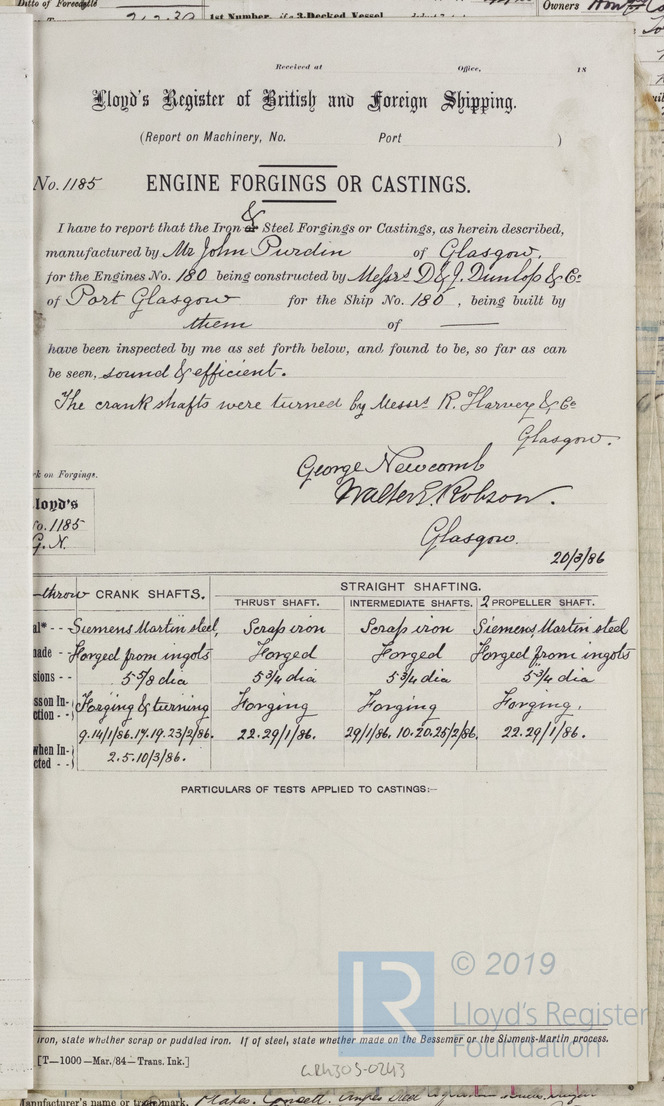 Ditto of Forecastle
1st Number, if a 3-Decked Vessel
Owners
Received at Office, 18
Lloyd's Register of British and Foreign Shipping.
(Report on Machinery, No. Port )
No. 1185 ENGINE FORGINGS OR CASTINGS.
&
I have to report that the Iron or Steel Forgings or Castings, as herein described,
manufactured by Mr John Purdin of Glasgow,
for the Engines No. 180 being constructed by Messrs D & J. Dunlop & Co
of Port Glasgow for the Ship No. 180, being built by
them of ——
have been inspected by me as set forth below, and found to be, so far as can
be seen, sound & efficient.
The crank shafts were turned by Messrs R. Harvey & Co
Glasgow.
k on Forgings.
George Newcomb
Walter E. Robson.
loyd's
o. 1185
G. N.
Glasgow.
20/3/86
STRAIGHT SHAFTING.
throw CRANK SHAFTS. THRUST SHAFT. INTERMEDIATE SHAFTS. 2 PROPELLER SHAFT.
al* - - Siemens Martin steel, Scrap iron Scrap iron Siemens Martin steel
ade - - Forged from ingots Forged Forged Forged from ingots
sions - - 5 5/8 dia 5 3/4 dia 5 3/4 dia 5 3/4 dia
sson In- Forging & turning Forging Forging Forging.
ction - -
9.14/1/86. 17.19.23/2/86. 22.29/1/86. 29/1/86. 10.20.25/2/86. 22.29/1/86.
when In-
cted - - 2.5.10/3/86.
PARTICULARS OF TESTS APPLIED TO CASTINGS:—
© 2019
LR
Lloyd's Register
Foundation
iron, state whether scrap or puddled iron. If of steel, state whether made on the Bessemer or the Siemens-Martin process.
[T—1000—Mar./84—Trans. Ink.]
Manufacturer's name or trade mark,